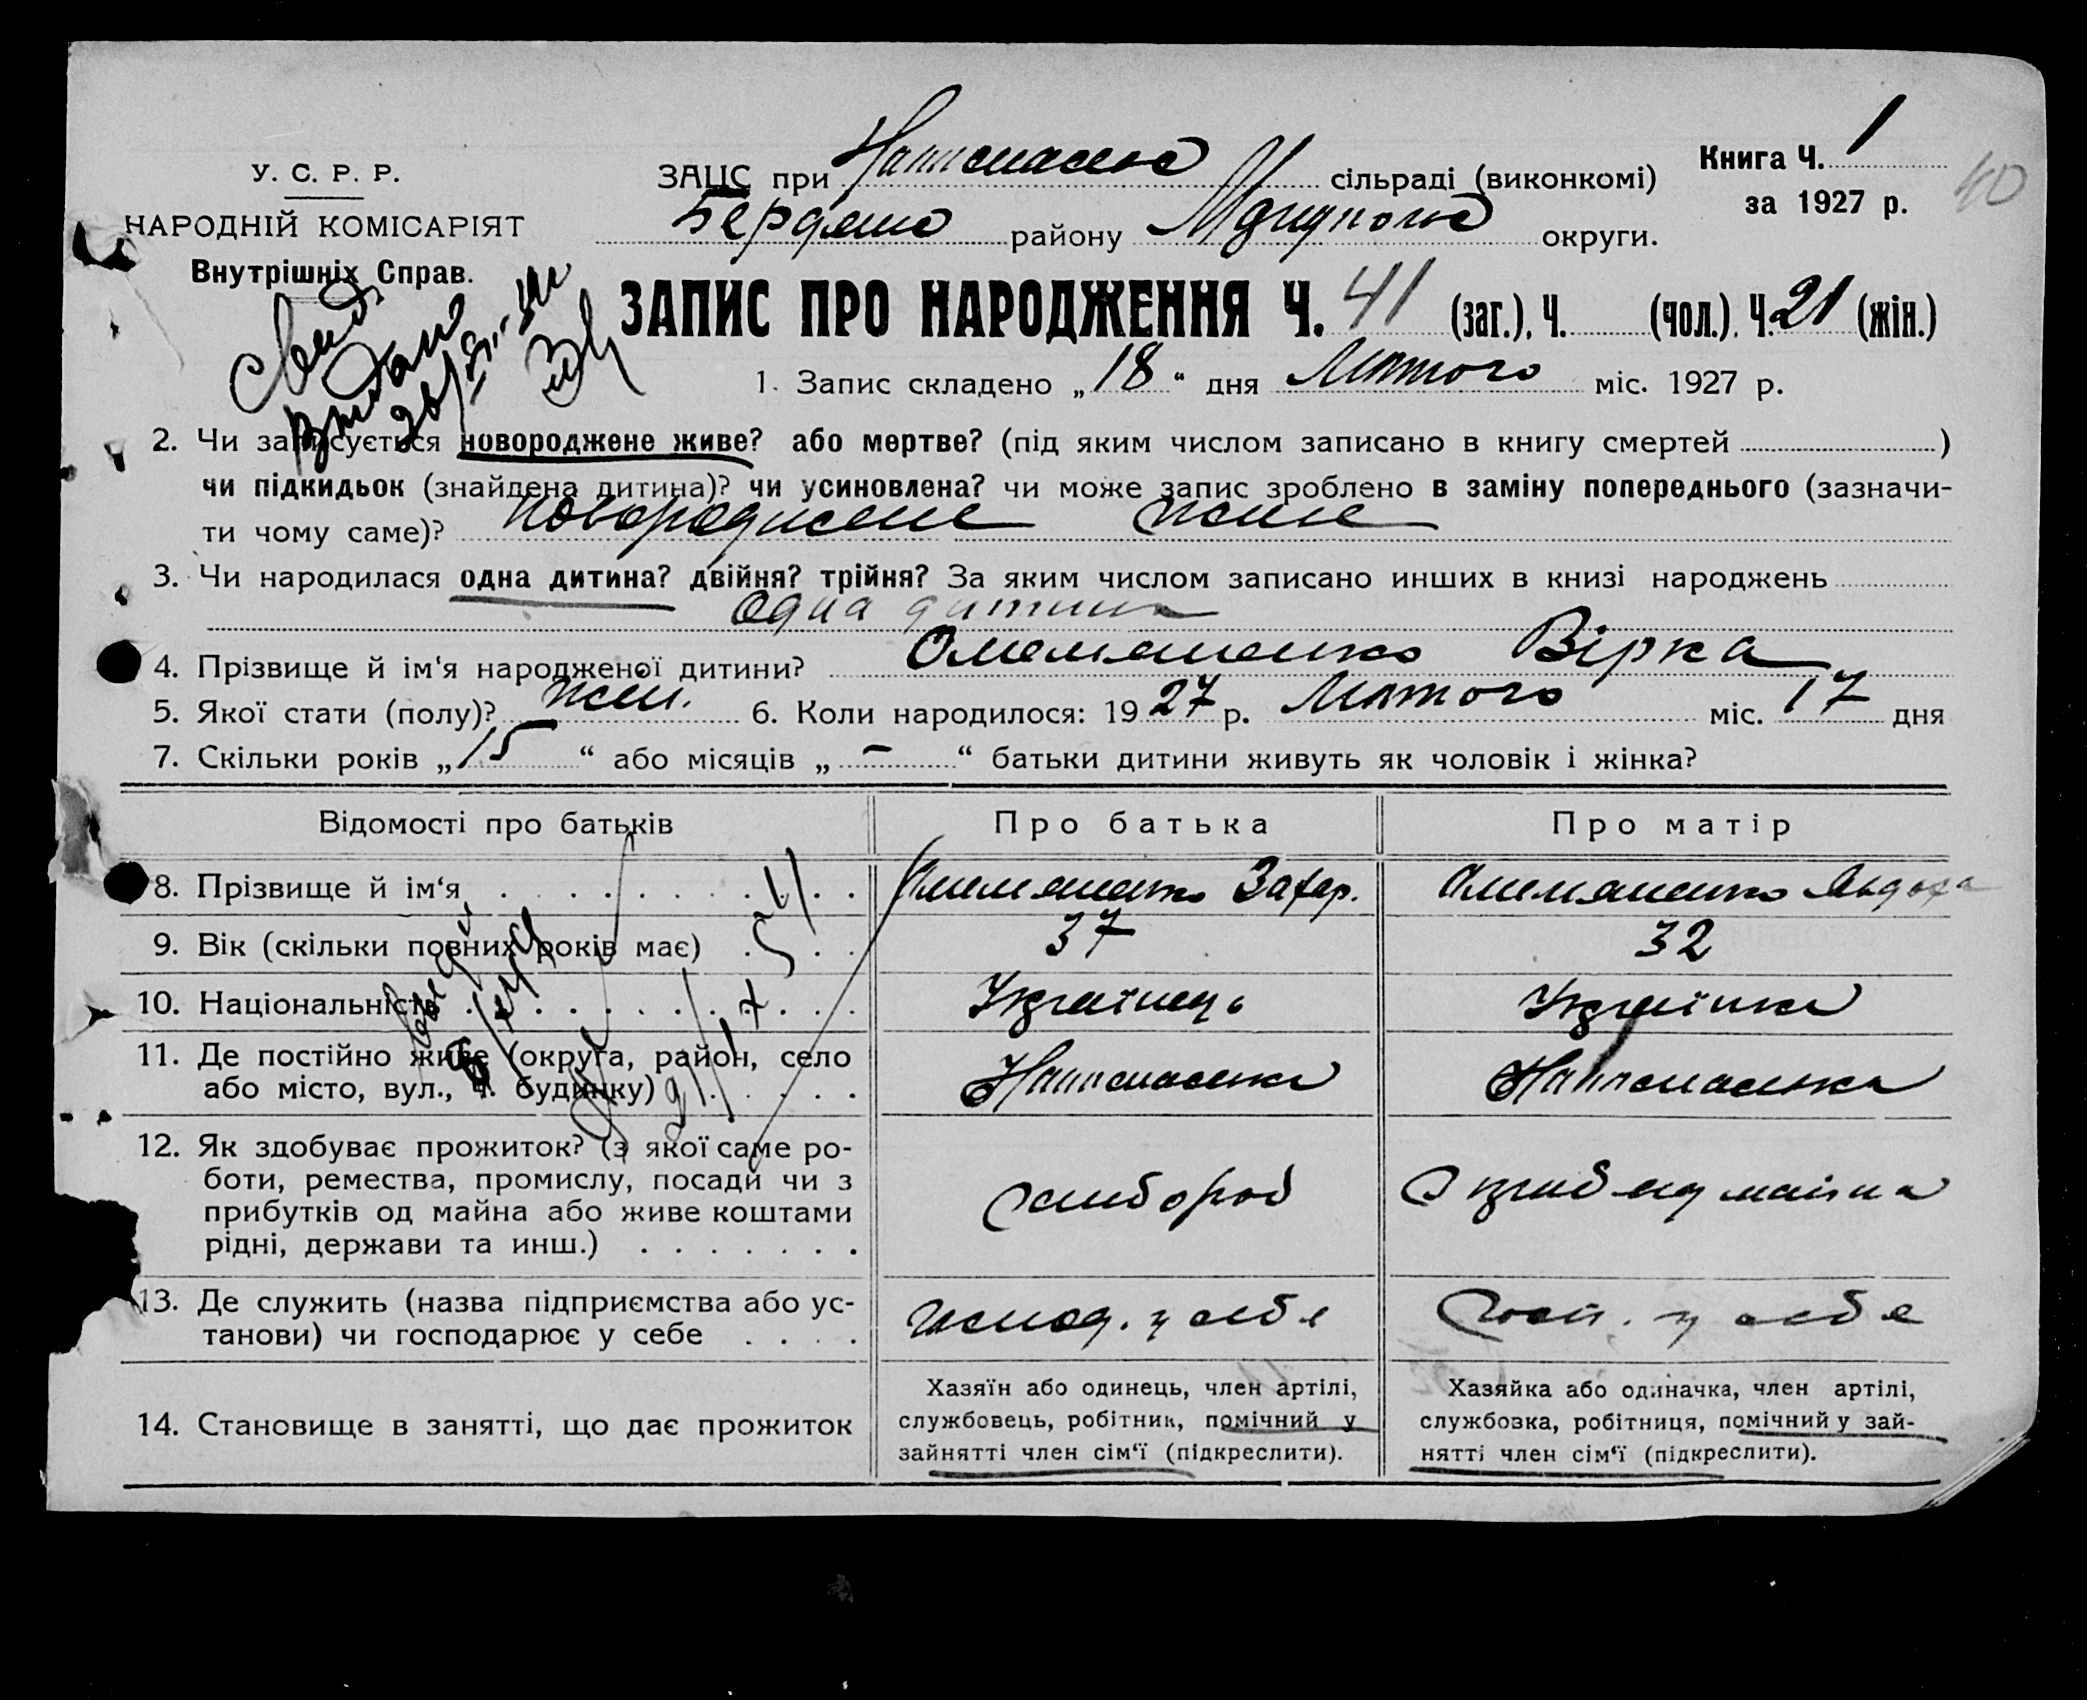 У. С. Р. Р.
НАРОДНІЙ КОМІСАРІЯТ
Внутрішніх Справ.
ЗАЦС при сільраді (виконкомі)
Бердянс району округи.
Книга Ч. 1
за 1927 р.
40
ЗАПИС ПРО НАРОДЖЕННЯ Ч. 41 (заг.), Ч. (чол.), Ч. 21 (жін.)
1. Запис складено „18“ дня Лютого міс. 1927 р.
2. Чи записується новороджене живе? або мертве? (під яким числом записано в книгу смертей )
чи підкидьок (знайдена дитина)? чи усиновлена? чи може запис зроблено в заміну попереднього (зазначи-
ти чому саме)? новороджене живе
3. Чи народилася одна дитина? двійня? трійня? За яким числом записано инших в книзі народжень
одна дитина
4. Прізвище й ім‘я народженої дитини? Омельяненко Вірка
5. Якої стати (полу)? жін. 6. Коли народилося: 1927 р. Лютого міс. 17 дня
7. Скільки років „15“ або місяців „-“ батьки дитини живуть як чоловік і жінка?
Відомості про батьків Про батька Про матір
8. Прізвище й ім‘я Омельяненко Захар. Омельяненко Явдоха
9. Вік (скільки повних років має) 37 32
10. Національність Українець Українка
11. Де постійно живе (округа, район, село
або місто, вул., ч. будинку)
12. Як здобуває прожиток? (з якої саме ро-
боти, ремества, промислу, посади чи з
прибутків од майна або живе коштами
рідні, держави та инш.)
хлібороб
13. Де служить (назва підприємства або ус-
танови) чи господарює у себе
госпо. у себе Госп. у себе
14. Становище в занятті, що дає прожиток
Хазяїн або одинець, член артілі,
службовець, робітник, помічний у
зайнятті член сім‘ї (підкреслити).
Хазяйка або одиначка, член артілі,
службовка, робітниця, помічний у зай-
нятті член сім‘ї (підкреслити).